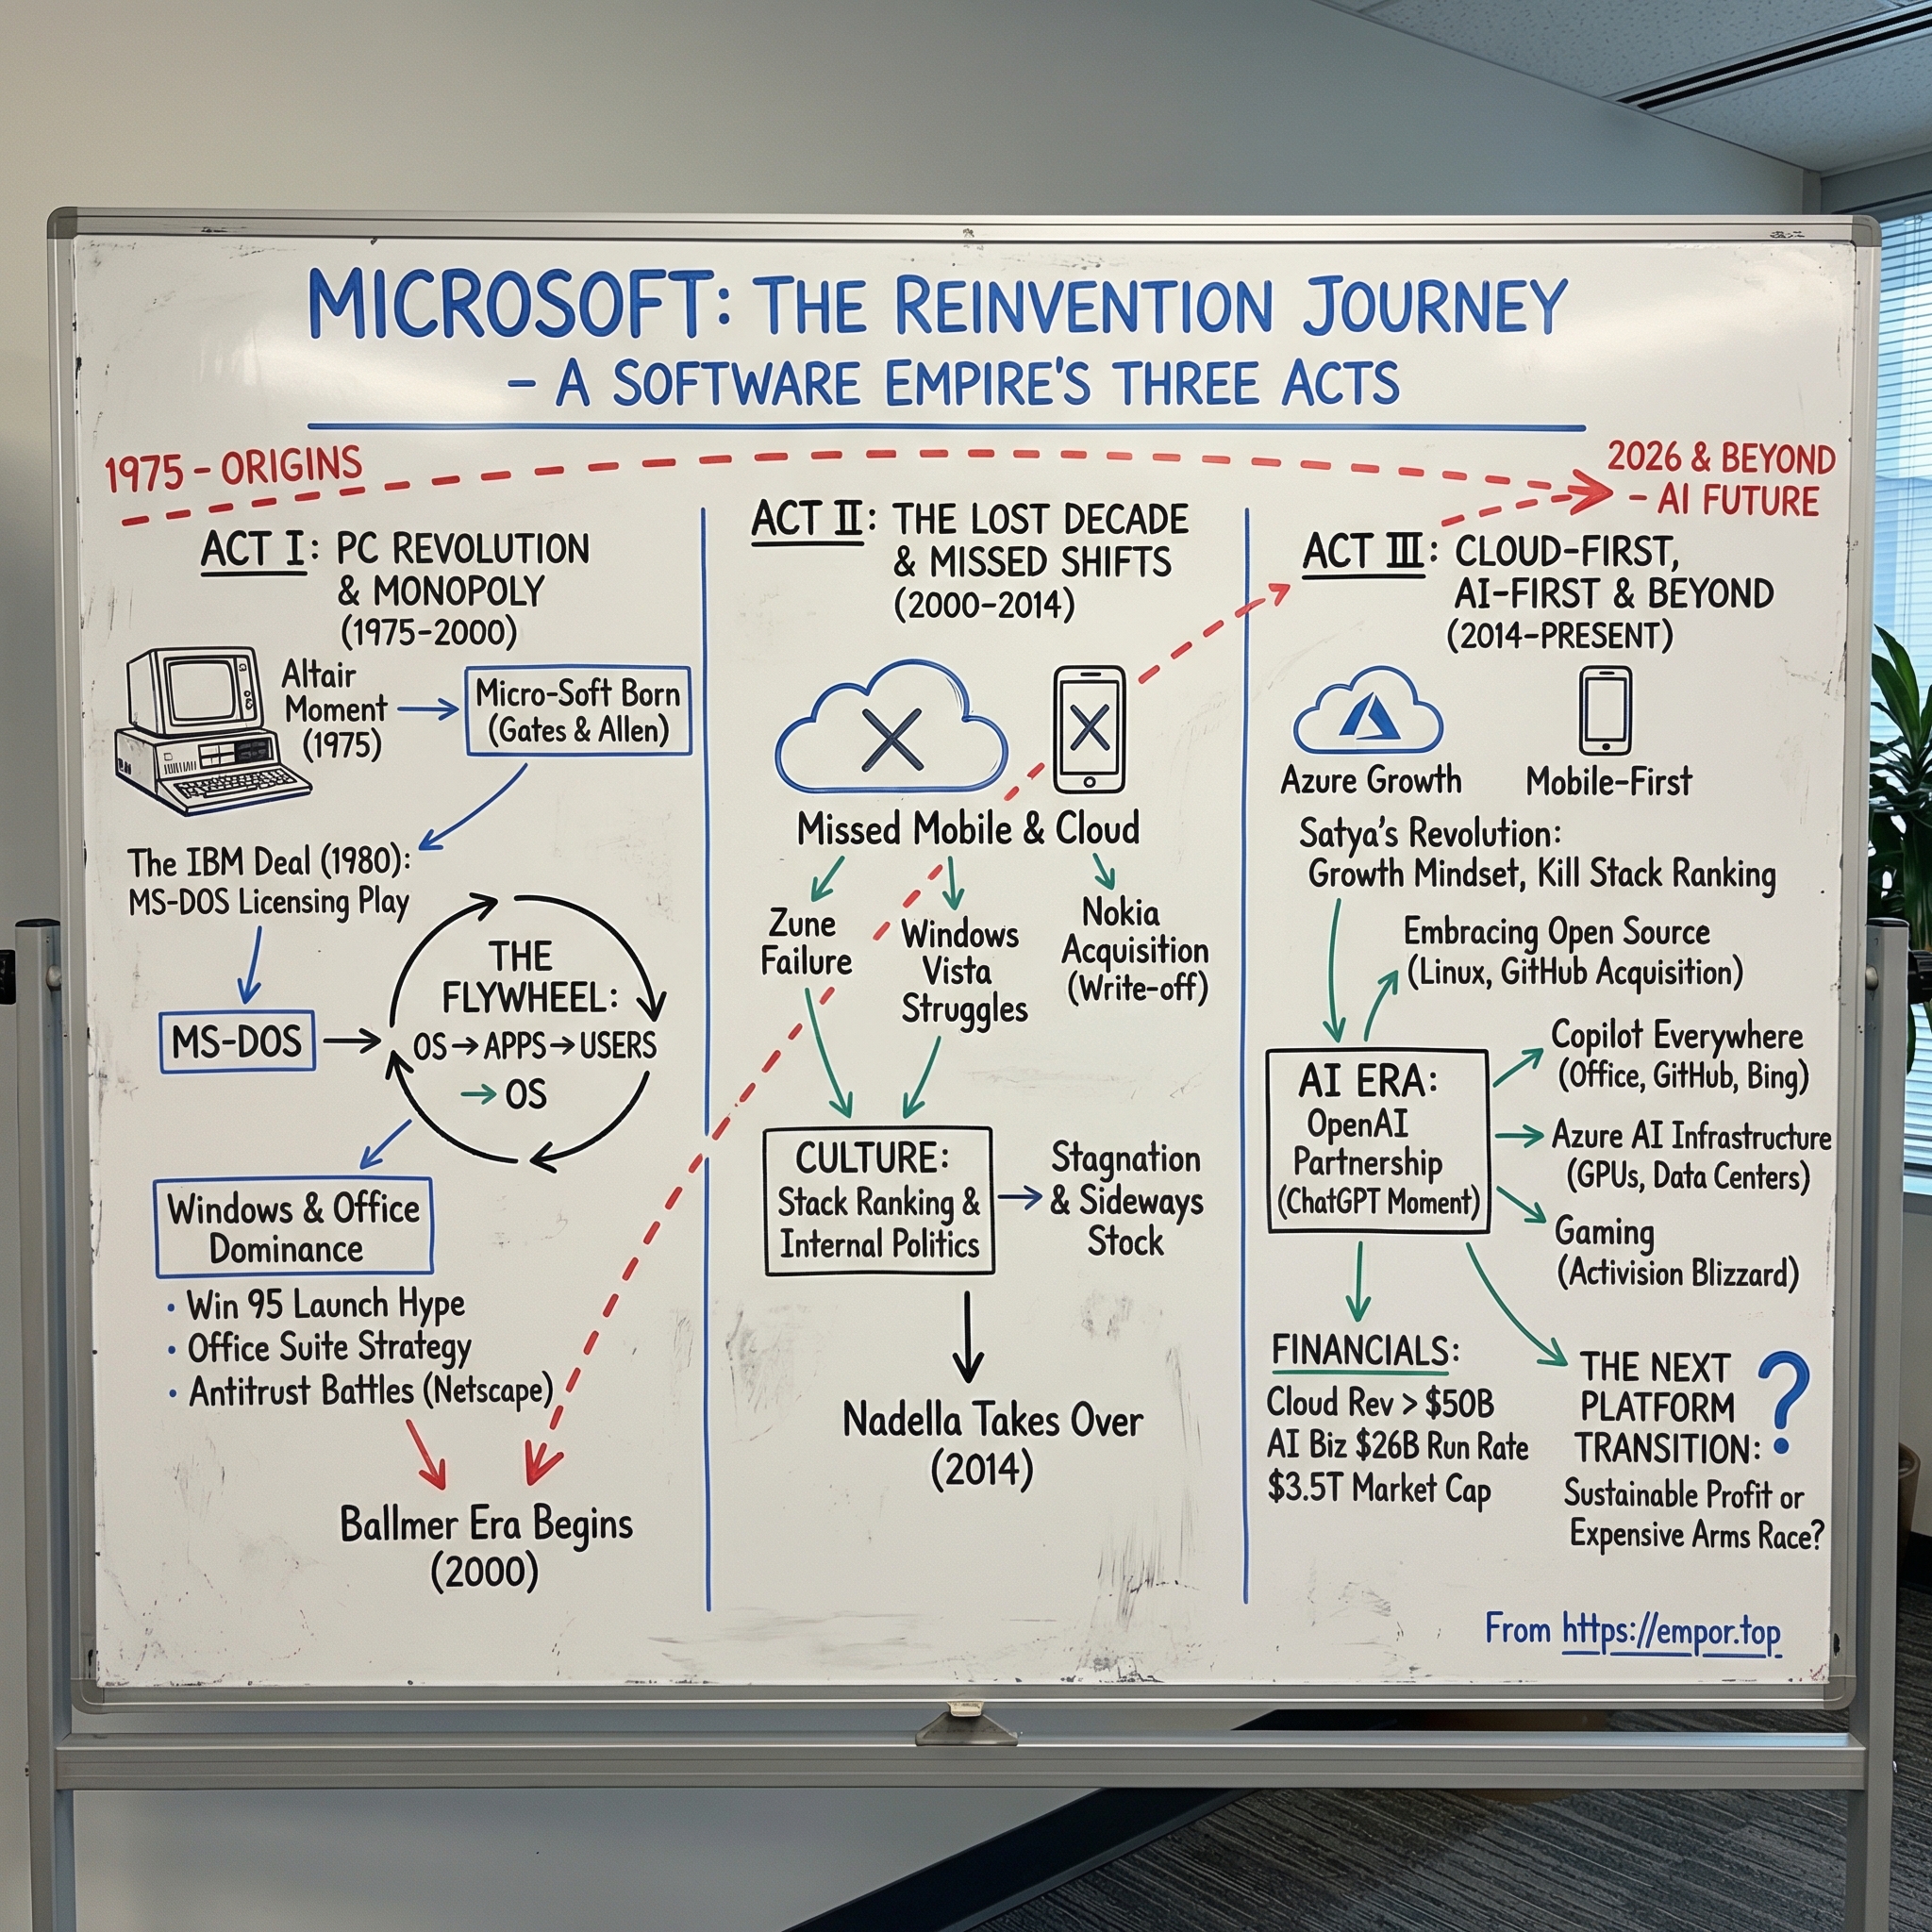 MICROSOFT: THE REINVENTION JOURNEY
– A SOFTWARE EMPIRE'S THREE ACTS
1975 – ORIGINS
2026 & BEYOND
– AI FUTURE
ACT I: PC REVOLUTION
& MONOPOLY
(1975–2000)
Altair
Moment
(1975)
Micro-Soft Born
(Gates & Allen)
The IBM Deal (1980):
MS-DOS Licensing Play
MS-DOS
THE
FLYWHEEL:
OS → APPS → USERS
→ OS
Windows & Office
Dominance
• Win 95 Launch Hype
• Office Suite Strategy
• Antitrust Battles (Netscape)
Ballmer Era Begins
(2000)
ACT II: THE LOST DECADE
& MISSED SHIFTS
(2000–2014)
Missed Mobile & Cloud
Zune
Failure
Windows
Vista
Struggles
Nokia
Acquisition
(Write-off)
CULTURE:
Stack Ranking &
Internal Politics
Stagnation
& Sideways
Stock
Nadella Takes Over
(2014)
ACT III: CLOUD-FIRST,
AI-FIRST & BEYOND
(2014–PRESENT)
Azure Growth
Mobile-First
Satya's Revolution:
Growth Mindset, Kill Stack Ranking
Embracing Open Source
(Linux, GitHub Acquisition)
AI ERA:
OpenAI
Partnership
(ChatGPT Moment)
Copilot Everywhere
(Office, GitHub, Bing)
Azure AI Infrastructure
(GPUs, Data Centers)
Gaming
(Activision Blizzard)
FINANCIALS:
Cloud Rev > $50B
AI Biz $26B Run Rate
$3.5T Market Cap
THE NEXT
PLATFORM
TRANSITION: ?
Sustainable Profit or
Expensive Arms Race?
From https://empor.top